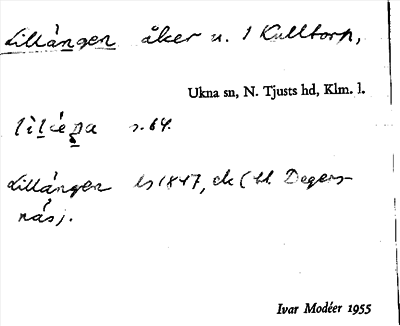 Lillängen åker u. 1 Kulltorp,
Ukna sn, N. Tjusts hd, Klm. l.
s. 64.
Lillängen ls 1847, ek (tl. Degers-
näs).
Ivar Modéer 1955